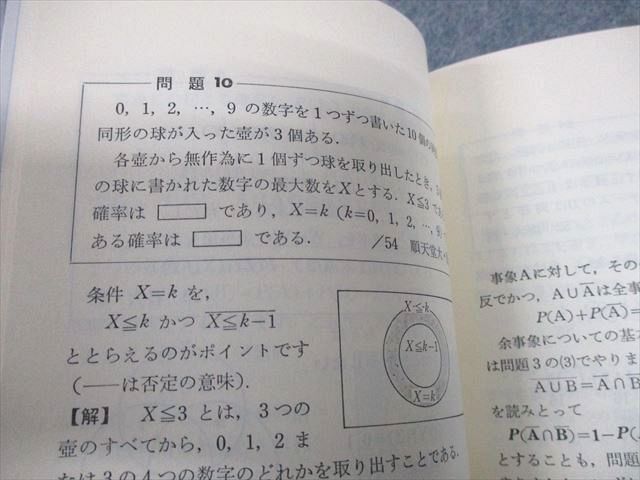 問題 10
0, 1, 2, …, 9 の数字を1つずつ書いた10個の
同形の球が入った壺が3個ある.
各壺から無作為に1個ずつ球を取り出したとき,
の球に書かれた数字の最大数をXとする. X≦3で
確率は □ であり, X=k (k=0, 1, 2, …, 9)
ある確率は □ である.
/54 順天堂大
条件 X=k を,
X≦k かつ \overline{X≦k−1}
ととらえるのがポイントです
(——は否定の意味).
【解】 X≦3 とは, 3つの
壺のすべてから, 0, 1, 2 ま
たは3の4つの数字のどれかを取り出すことである.
X≦k
X≦k−1
X=k
事象Aに対して, その
反でかつ, A∪\overline{A}は全事
P(A)+P(\overline{A})=
余事象についての基
は問題3の(3)でやりま
\overline{A∪B}=\overline{A}∩\overline{B}
を読みとって
P(\overline{A}∩\overline{B})=1−P(
とすることも, 問題